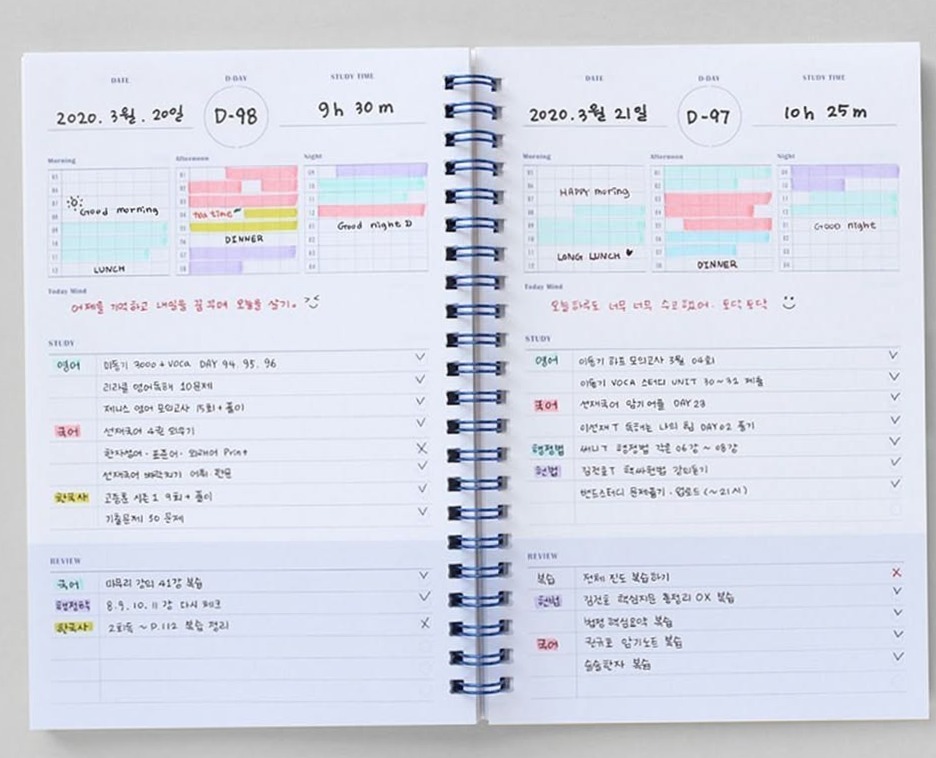 DATE
D-DAY
STUDY TIME
2020. 3월. 20일
D-98
9h 30m
Morning
Afternoon
Night
Good morning
LUNCH
Tea time
DINNER
Good night
Today Mind
어제를 기억하고 내일을 꿈꾸며 오늘을 살기.
STUDY
영어
이동기 3000 + VOCA DAY 94. 95. 96
리라클 영어독해 10문제
제니스 영어 모의고사 15회 + 풀이
국어
선재국어 4권 외우기
한자성어 · 표준어 · 외래어 Print
선재국어 어휘 한문
한국사
고종훈 시즌 1 9회 + 풀이
기출문제 50 문제
REVIEW
국어
마무리 강의 41강 복습
행정학
8. 9. 10. 11 강 다시 체크
한국사
2회독 ~ P.112 복습 정리
DATE
D-DAY
STUDY TIME
2020. 3월 21일
D-97
10h 25m
Morning
Afternoon
Night
HAPPY moring
LONG LUNCH
DINNER
Good night
Today Mind
오늘 하루도 너무 너무 수고했어. 토닥 토닥
STUDY
영어
이동기 하프 모의고사 3월 04회
이동기 VOCA 스터디 UNIT 30~32 제출
국어
선재국어 암기어플 DAY 23
이선재T 독해는 나의 힘 DAY 02 풀기
행정법
써니T 행정법 각론 06강 ~ 08강
헌법
김건호T 헌법 강의듣기
밴드스터디 문제풀기 · 업로드 (~21시)
REVIEW
복습
전체 진도 복습하기
헌법
김건호 핵심지문 총정리 OX 복습
법정 핵심요약 복습
국어
권규호 암기노트 복습
술술한자 복습